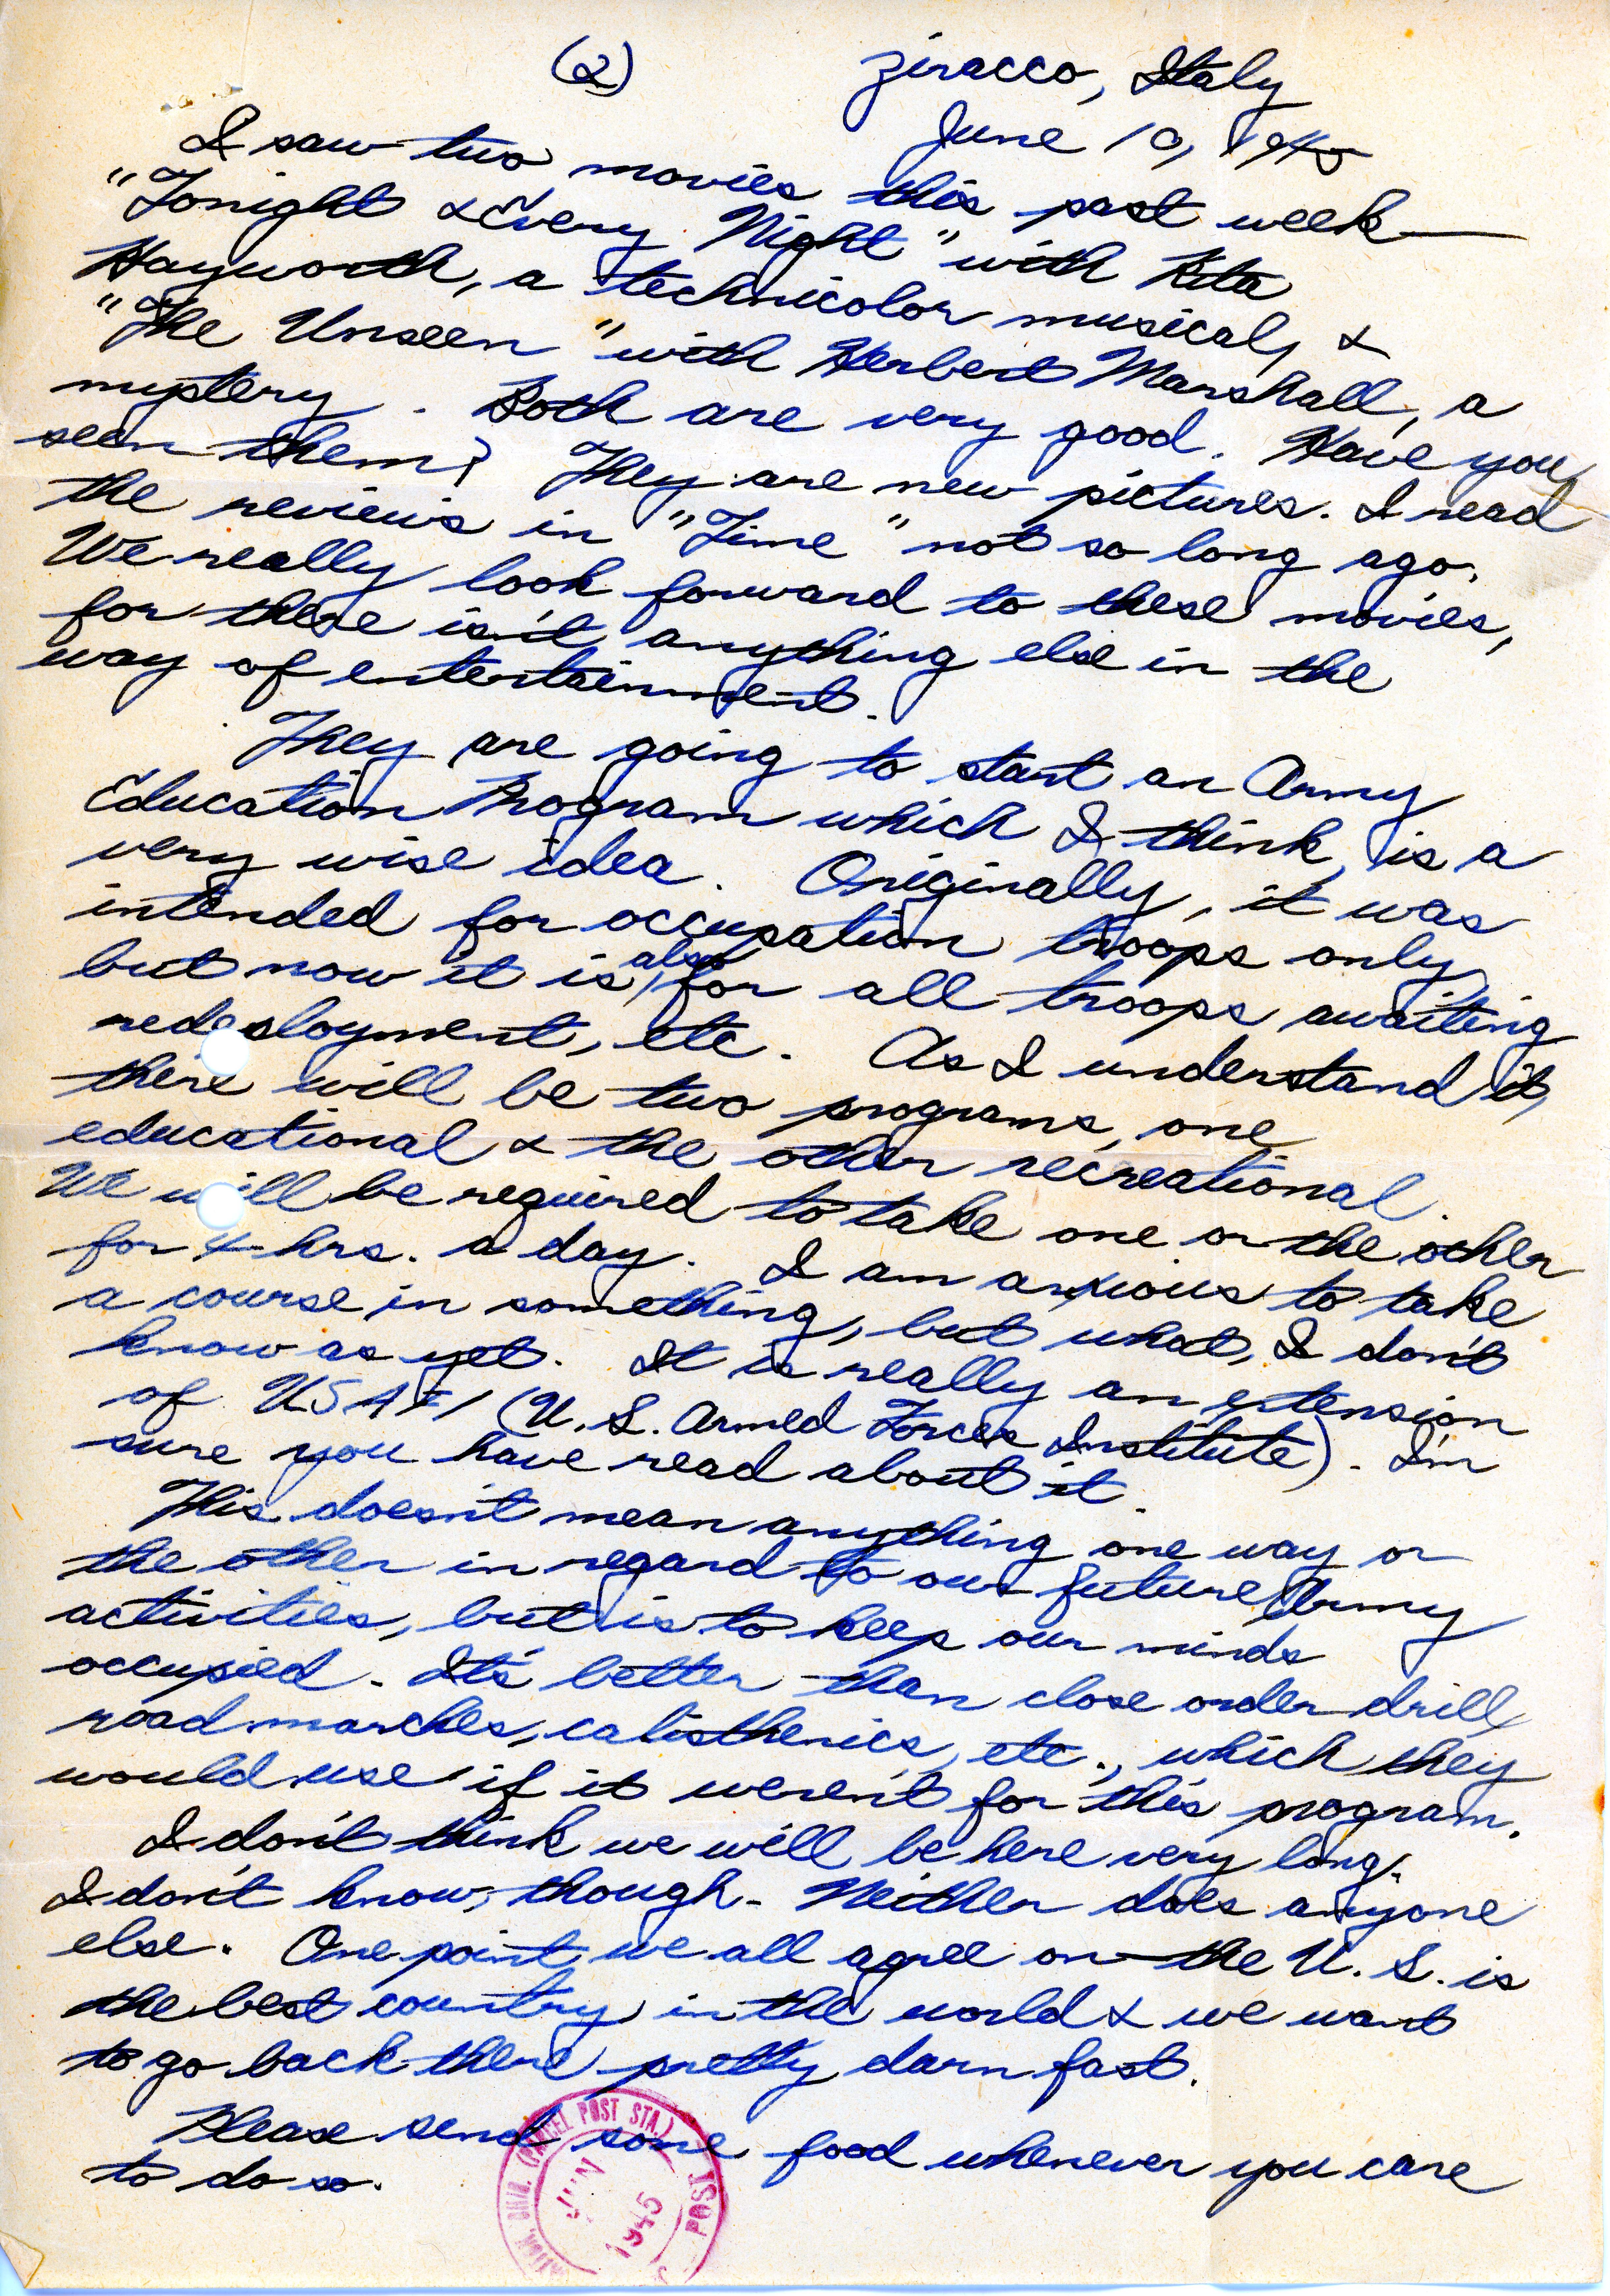 (2)
Ziracco, Italy
June 10, 1945
I saw two movies this past week—
"Tonight & Every Night" with Rita
Hayworth, a technicolor musical, &
"The Unseen" with Herbert Marshall, a
mystery. Both are very good. Have you
seen them? They are new pictures. I read
the reviews in "Time" not so long ago.
We really look forward to these movies,
for there isn't anything else in the
way of entertainment.
They are going to start an Army
Education Program which I think, is a
very wise idea. Originally, it was
intended for occupation troops only
but now it is also for all troops awaiting
redeployment, etc. As I understand it,
there will be two programs, one
educational & the other recreational.
We will be required to take one or the other
for 4 hrs. a day. I am anxious to take
a course in something, but what, I don't
know as yet. It is really an extension
of USAFI (U. S. Armed Forces Institute). I'm
sure you have read about it.
This doesn't mean anything one way or
the other in regard to our future Army
activities, but is to keep our minds
occupied. It's better than close order drill,
road marches, calisthenics, etc., which they
would use if it weren't for this program.
I don't think we will be here very long.
I don't know, though. Neither does anyone
else. One point we all agree on—the U. S. is
the best country in the world & we want
to go back there pretty darn fast.
Please send some food whenever you care
to do so.
(PARCEL POST STA.)
JUN
1945
POST